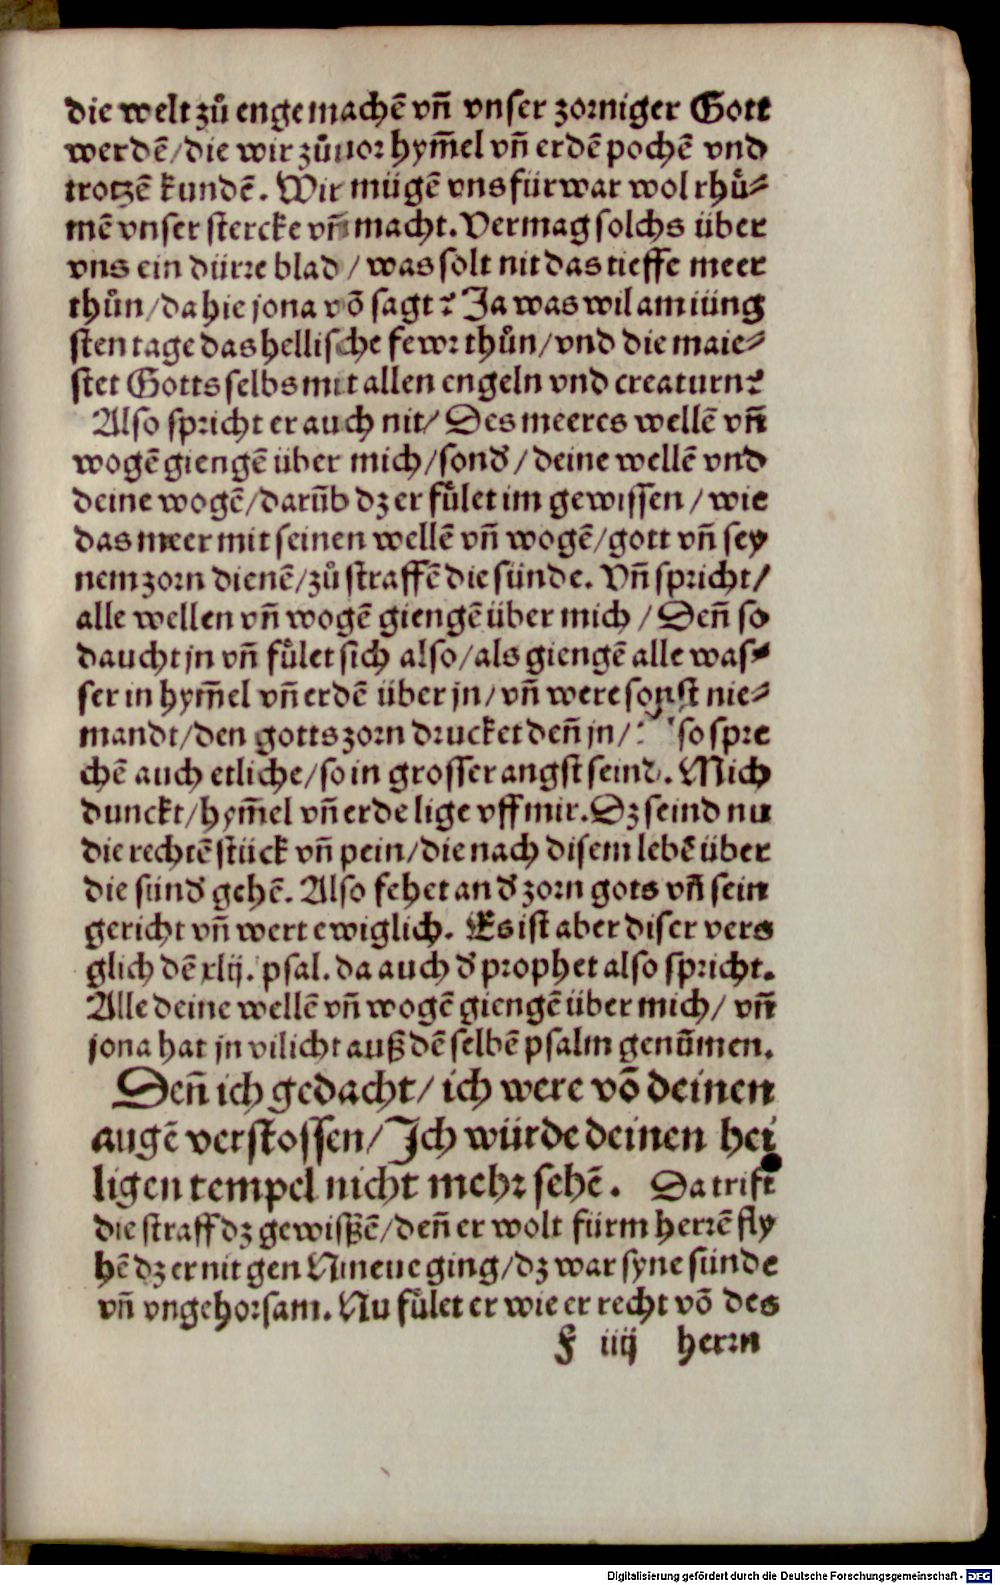 die welt zů enge machē vñ vnser zorniger Gott
werdē/die wir zůuor hym̄el vñ erdē pochē vnd
trotzē kundē. Wir mügē vns fürwar wol rhů⸗
mē vnser stercke vñ macht. Vermag solchs über
vns ein dürre blad / was solt nit das tieffe meer
thůn/da hie jona vō sagt? Ja was wil am iüng
sten tage das hellische fewr thůn/vnd die maie⸗
stet Gotts selbs mit allen engeln vnd creaturn?
Also spricht er auch nit/ Des meeres wellē vñ
wogē giengē über mich/sonđ/ deine wellē vnd
deine wogē/darūb dz er fůlet im gewissen / wie
das meer mit seinen wellē vñ wogē/gott vñ sey
nem zorn dienē/zů straffē die sünde. Vñ spricht/
alle wellen vñ wogē giengē über mich / Deñ so
daucht jn vñ fůlet sich also/als giengē alle was⸗
ser in hym̄el vñ erdē über jn/ vñ were sonst nie⸗
mandt/den gotts zorn drucket deñ jn/ so spre
chē auch etliche/so in grosser angst seind. Mich
dunckt/hym̄el vñ erde lige vff mir. Dz seind nu
die rechtē stück vñ pein/die nach disem lebē über
die sünđ gehē. Also fehet an đ zorn gots vñ sein
gericht vñ wert ewiglich. Es ist aber diser vers
glich dē xlij. psal. da auch đ prophet also spricht.
Alle deine wellē vñ wogē giengē über mich/ vñ
jona hat jn vilicht auß dē selbē psalm genūmen.
Deñ ich gedacht/ ich were vō deinen
augē verstossen/Ich würde deinen hei
ligen tempel nicht mehr sehē. Da trift
die straff dz gewißē/deñ er wolt fürm herrē fly
hē dz er nit gen Nineue ging/dz war syne sünde
vñ vngehorsam. Nu fůlet er wie er recht vō des
F iiij herrn
Digitalisierung gefördert durch die Deutsche Forschungsgemeinschaft - DFG